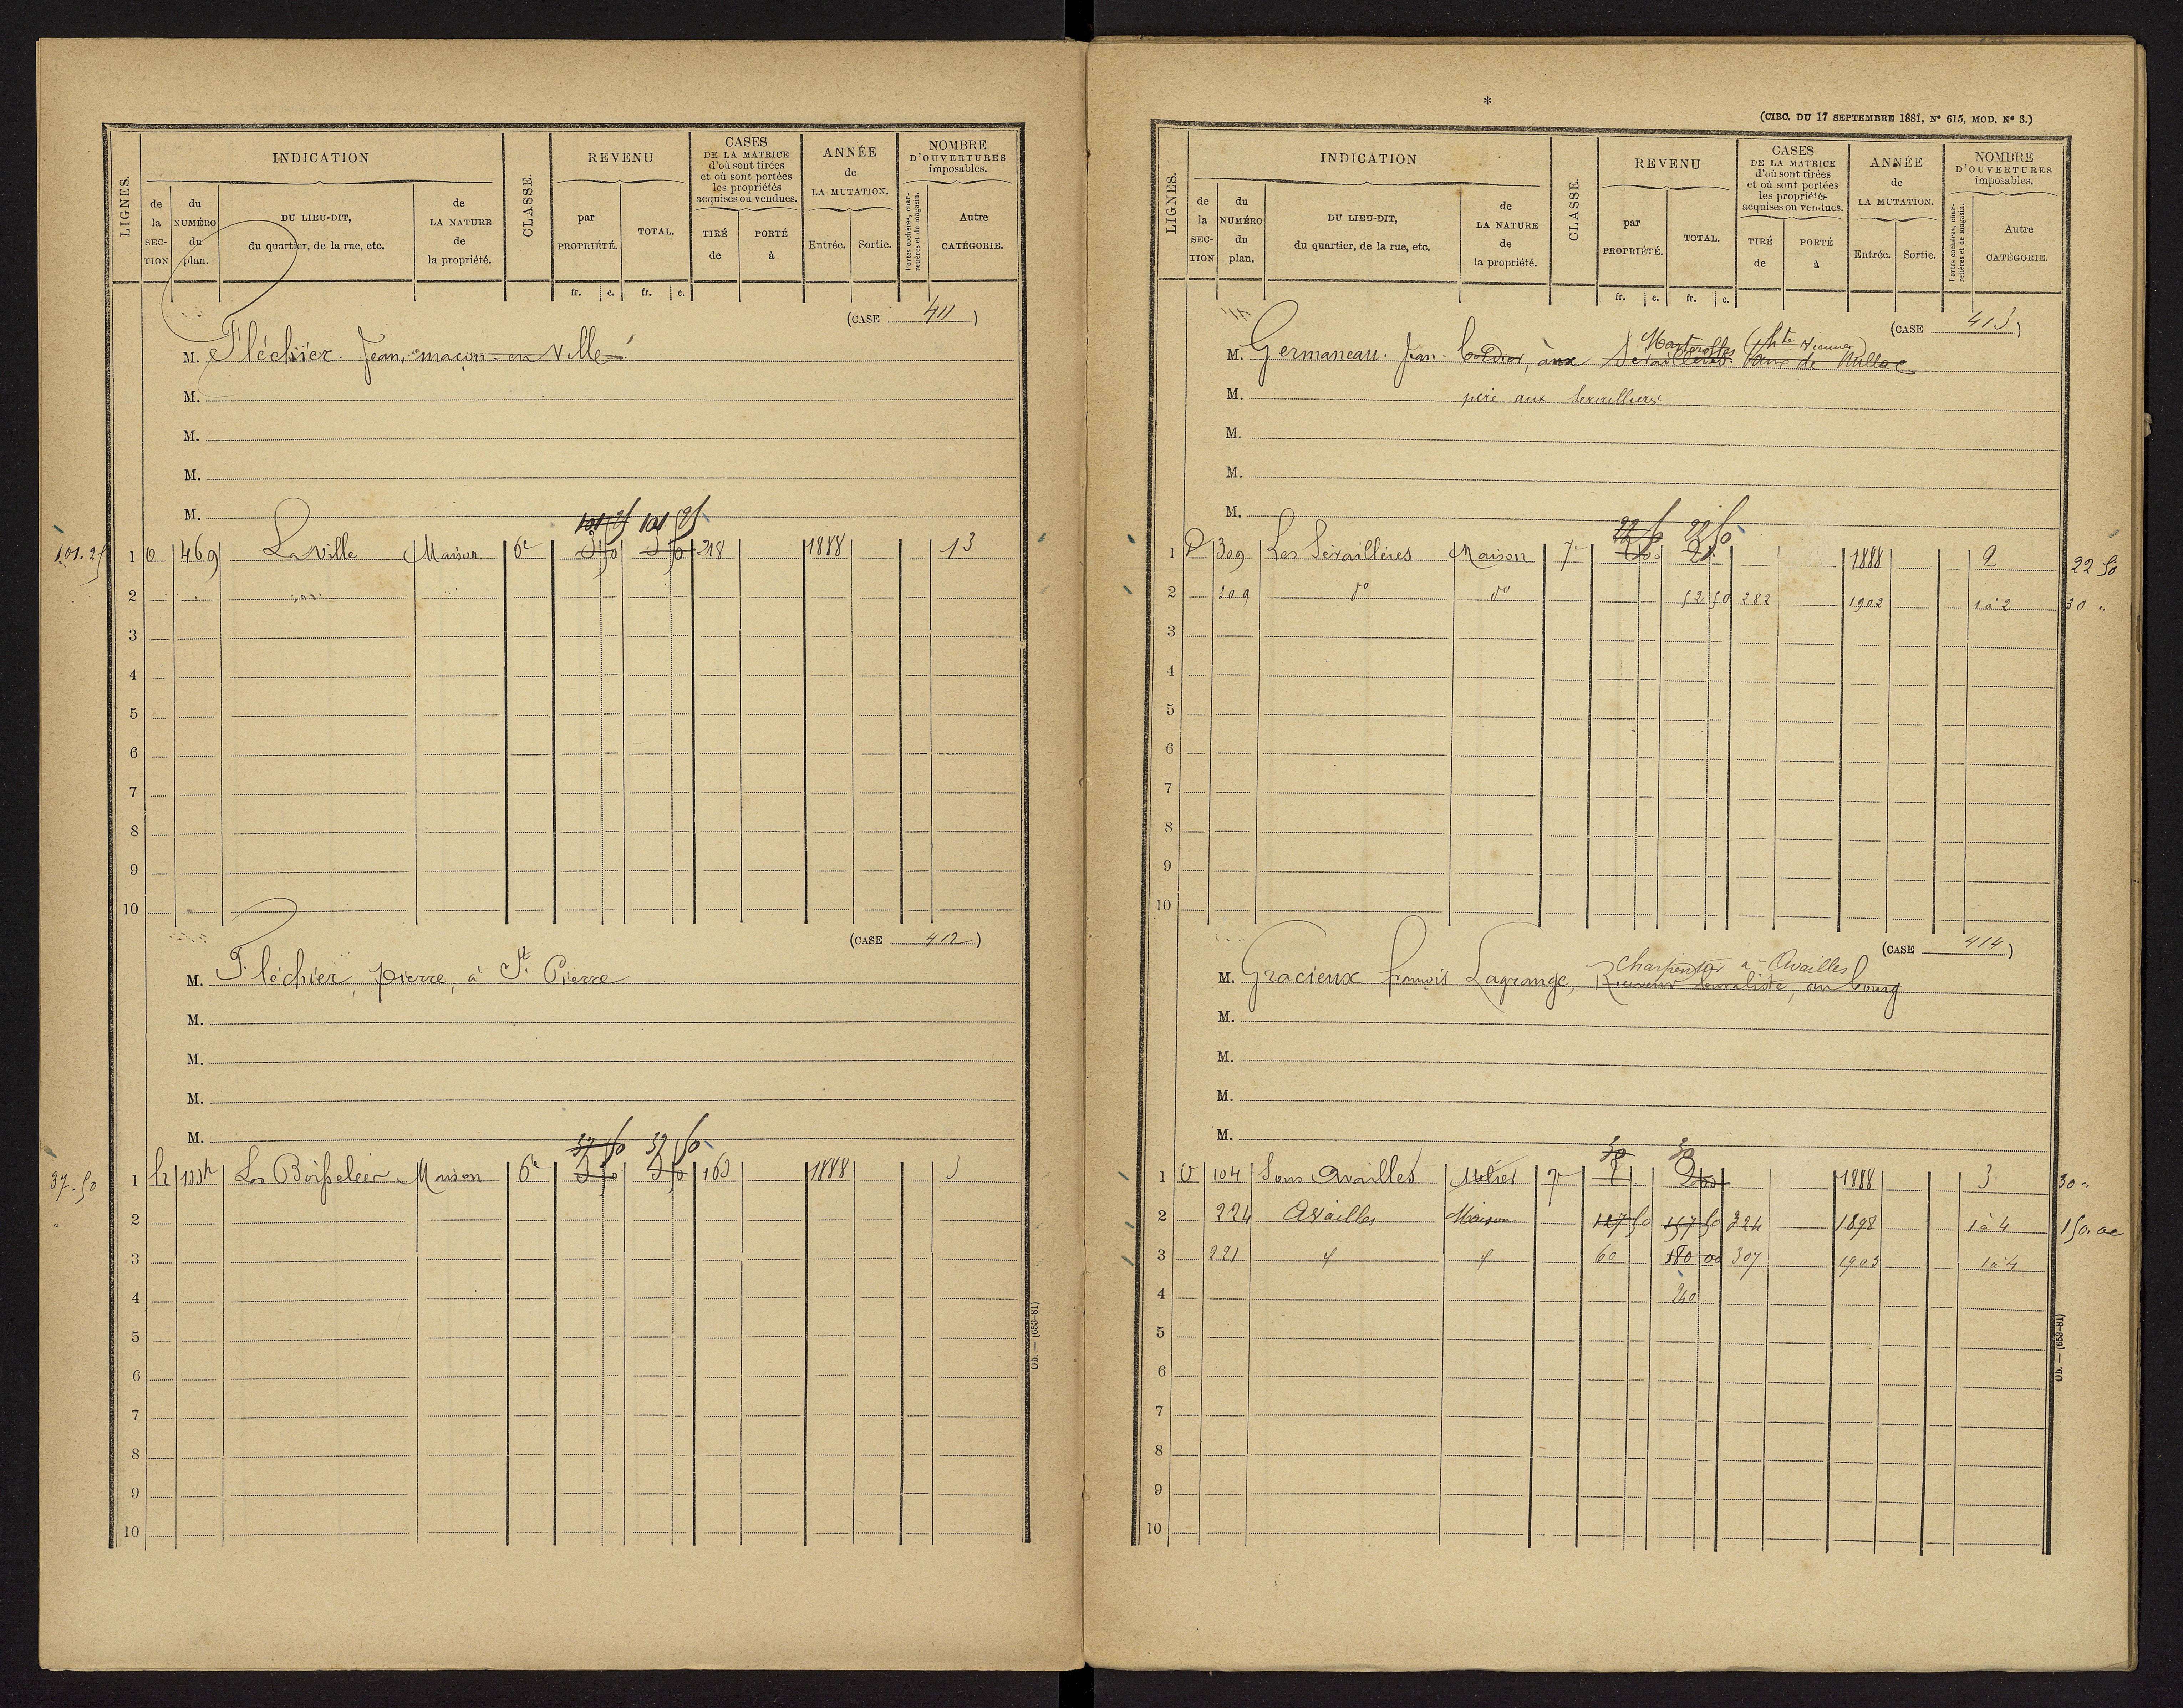 LIGNES.
INDICATION
de la SECTION
du NUMÉRO du plan.
DU LIEU-DIT, du quartier, de la rue, etc.
de LA NATURE de la propriété.
CLASSE.
REVENU
par PROPRIÉTÉ.
TOTAL.
fr. c. fr. c.
CASES DE LA MATRICE d'où sont tirées et où sont portées les propriétés acquises ou vendues.
TIRÉ de
PORTÉ à
ANNÉE de LA MUTATION.
Entrée. Sortie.
NOMBRE D'OUVERTURES imposables.
Portes cochères, charretières et de magasin.
Autre CATÉGORIE.
(CASE 411)
M. Fléchier Jean, maçon en Ville
M.
M.
M.
M.
101 25 101 25
101.25 1 469 La Ville Maison 6e 218 1888 13
2
3
4
5
6
7
8
9
10
(CASE 412)
M. Fléchier, pierre, à St. Pierre
M.
M.
M.
M.
37 50 37 50
37.50 1 Maison 6e 1888
2
3
4
5
6
7
8
9
10
Ob. — (653-81)
*
(CIRC. DU 17 SEPTEMBRE 1881, N° 615, MOD. N° 3.)
LIGNES.
INDICATION
de la SECTION
du NUMÉRO du plan.
DU LIEU-DIT, du quartier, de la rue, etc.
de LA NATURE de la propriété.
CLASSE.
REVENU
par PROPRIÉTÉ.
TOTAL.
fr. c. fr. c.
CASES DE LA MATRICE d'où sont tirées et où sont portées les propriétés acquises ou vendues.
TIRÉ de
PORTÉ à
ANNÉE de LA MUTATION.
Entrée. Sortie.
NOMBRE D'OUVERTURES imposables.
Portes cochères, charretières et de magasin.
Autre CATÉGORIE.
(CASE 413)
(Hte Vienne)
M. Germaneau Jean
M. père aux
M.
M.
M.
22 50 22 50
1 309 Les Séraillères Maison 7e 1888 2 22 50
2 309 do do 52 50 282 1902 1 à 2 30 "
3
4
5
6
7
8
9
10
(CASE 414)
charpentier à Availles
M. Gracieux françois Lagrange, au bourg
M.
M.
M.
M.
30 30
1 104 Sous Availles 7e 1888 3 30 "
2 224 Availles Maison 127 50 157 50 324 1898 1 à 4 150.00
3 221 60 180 00 307 1903 1 à 4
4 240
5
6
7
8
9
10
Ob. — (653-81)